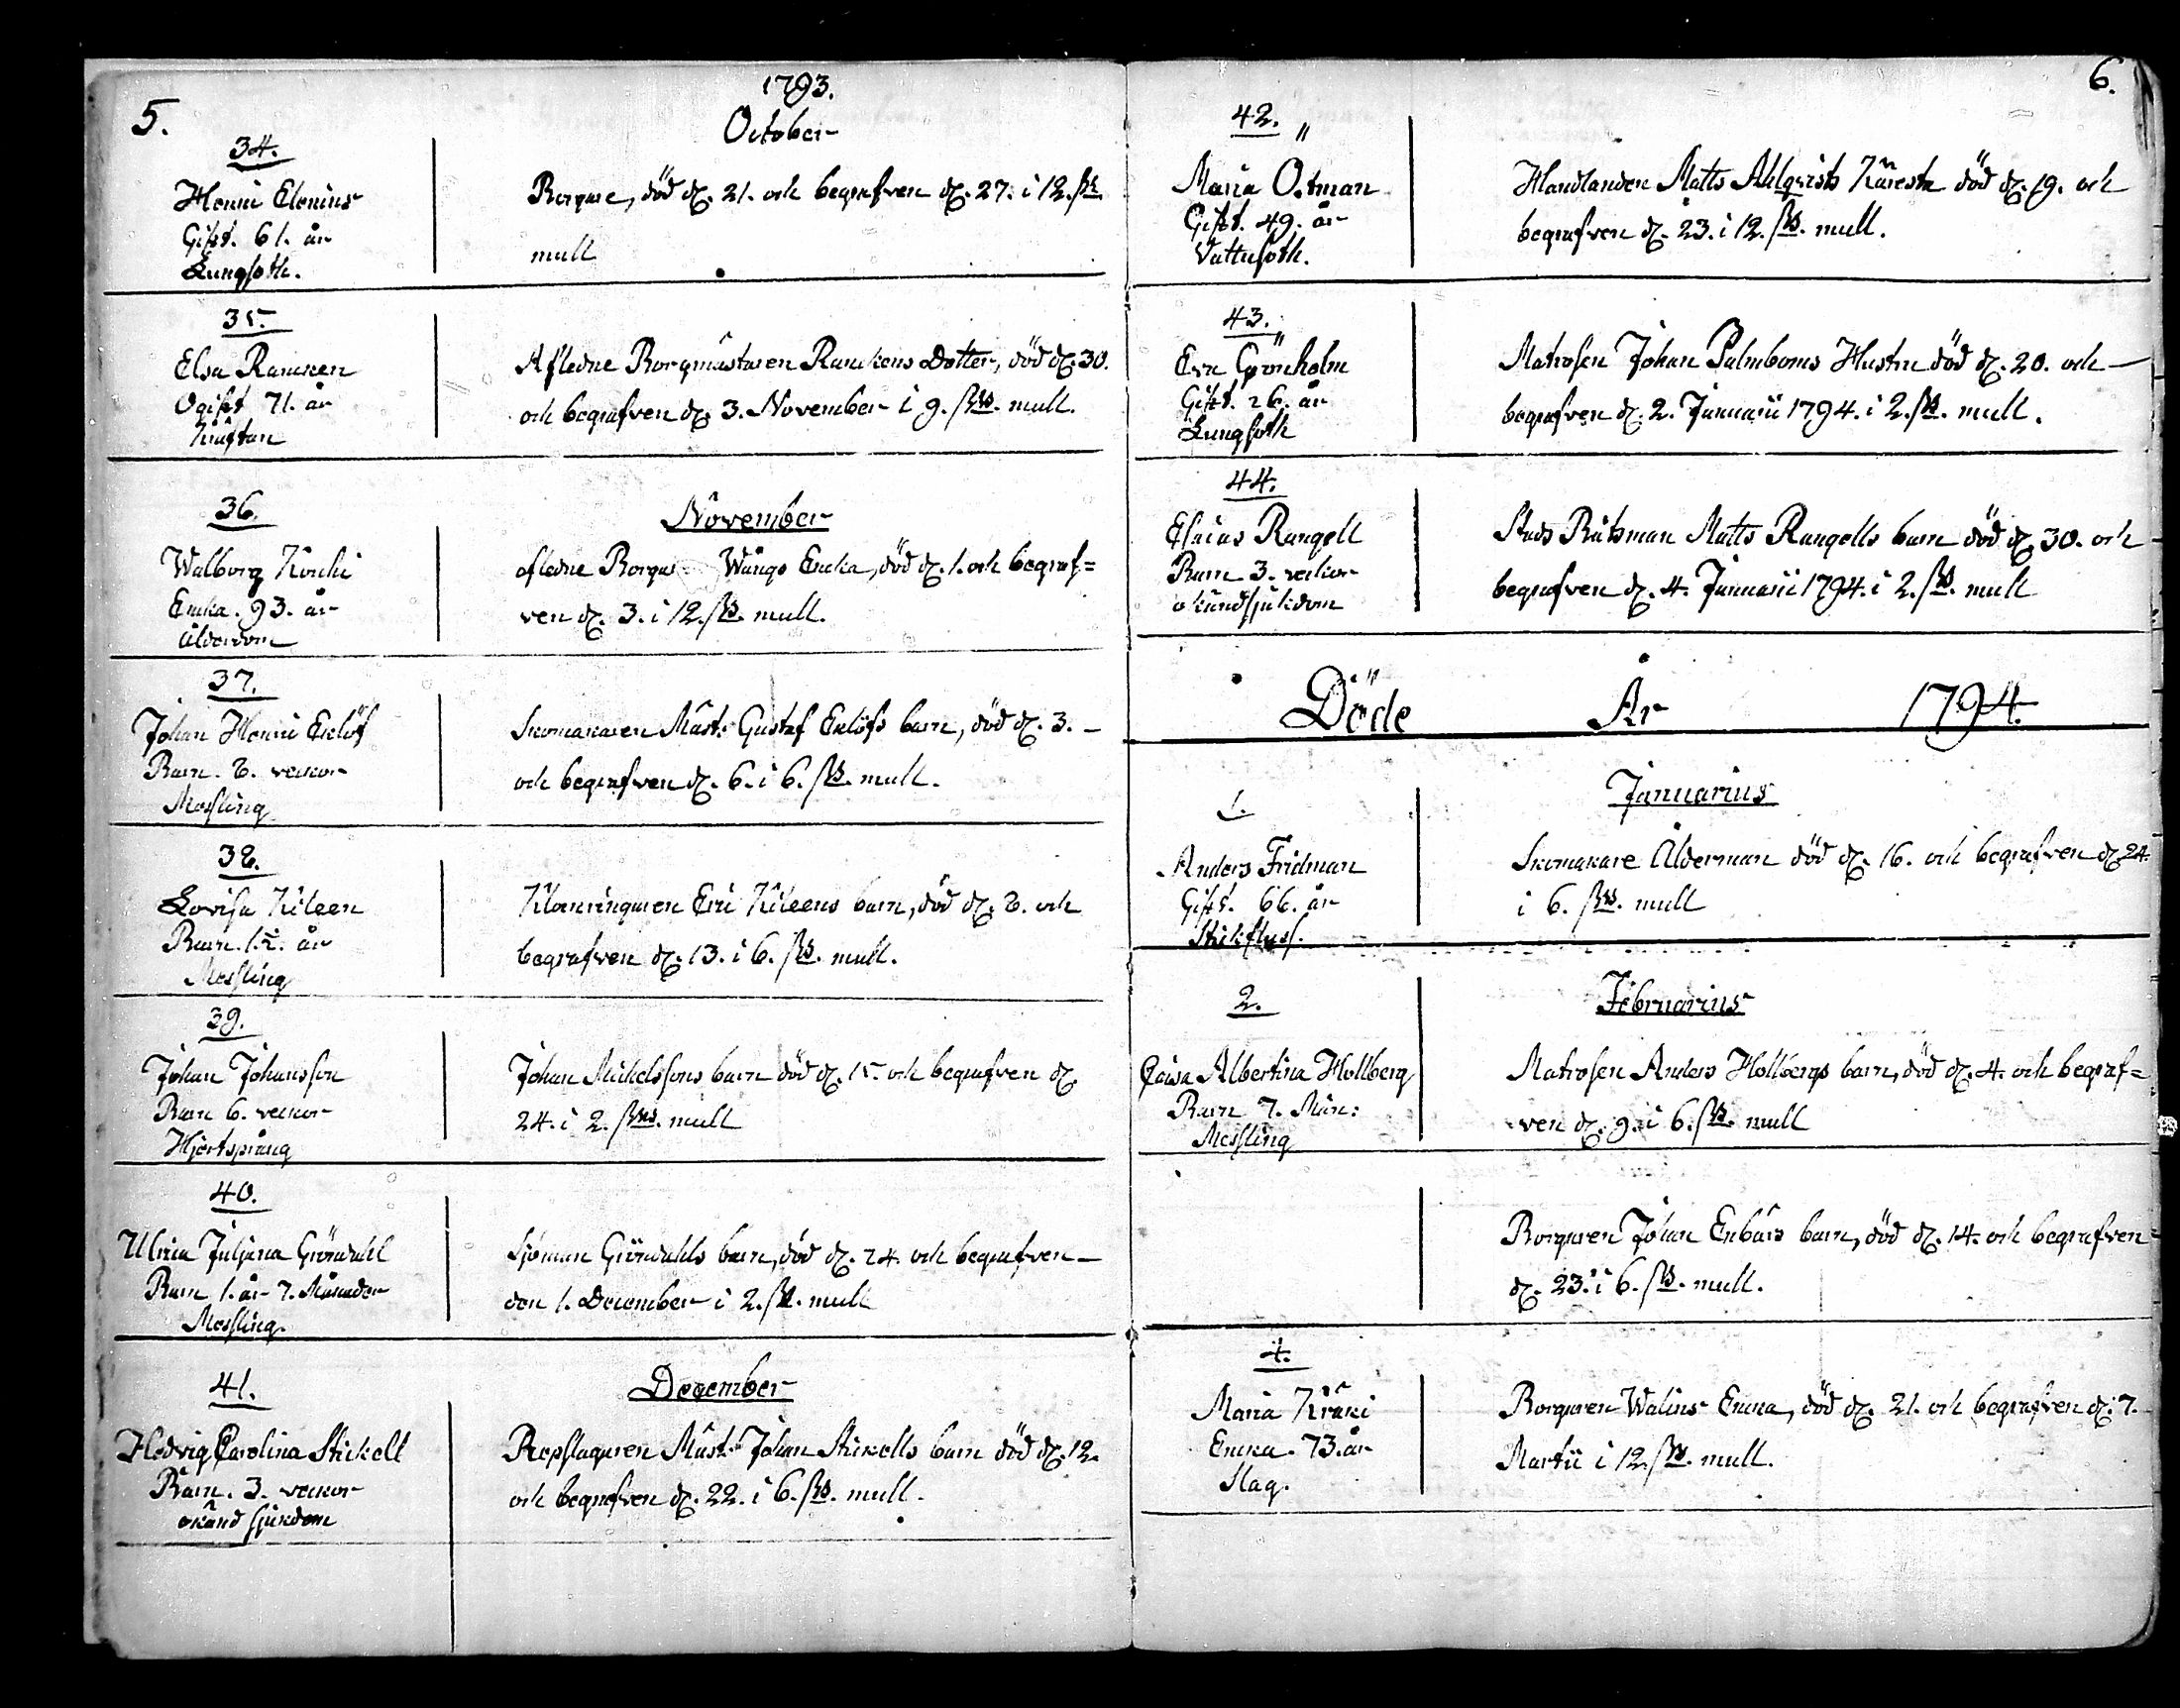 5.
1793.
October
34.
Henric Elenius
Gift. 61. år
Lungsoth.
Borgare, död d. 21. och begrafven d. 27. i 12. sks.
mull
35.
Elsa Rancken
Ogift 71. år
Kräftan
Afledne Borgmästaren Ranckens Dotter, död d. 30.
och begrafven d. 3. November i 9. sks. mull.
36.
November
Walborg
Encka. 93. år
Ålderdom
afledne Borgar Wångs Encka, död d. 1. och begraf=
ven d. 3. i 12. sks. mull.
37.
Johan Henric Eklöf
Barn. 8. veckor
Messling
Skomakaren Mäst: Gustaf Eklöfs barn, död d. 3. –
och begrafven d. 6. i 6. sks. mull.
38.
Lovisa Kileen
Barn. 1½. år
Messling
Eric Kileens barn, död d. 8. och
begrafven d. 13. i 6. sks. mull.
39.
Johan Johansson
Barn 6. veckor
Hjertsprång
Johan Mickelssons barn död d. 15. och begrafven d.
24. i 2. sks. mull
40.
Ulrica Juliana Gröndahl
Barn 1. år 7. Månader
Messling.
Sjöman Gröndahls barn, död d. 24. och begrafven –
den 1. December i 2. sk. mull
41.
December
Hedvig Carolina Stickell
Barn. 3. veckor
okänd sjukdom
Repslagaren Mäst: Johan Stickells barn död d. 12.
och begrafven d. 22. i 6. sks. mull.
6.
42.
Maria Östman
Gift. 49. år
Vattusoth.
Handlanden Matts Ahlqvists Käresta död d. 19. och
begrafven d. 23. i 12. sks. mull.
43.
Eva Grönholm
Gift. 26. år
Lungsoth
Matrosen Johan Palmboms Hustru död d. 20. och –
begrafven d. 2. Januarii 1794. i 2. sks. mull.
44.
Esaias Rangell
Barn 3. veckor
okänd sjukdom
Stads Båtsman Matts Rangells barn död d. 30. och
begrafven d. 4. Januarii 1794. i 2. sks. mull
Döde År 1794.
Januarius
1.
Anders Fridman
Gift. 66. år
Stickfluss.
Skomakare Ålderman död d. 16. och begrafven d. 24.
i 6. sks. mull
2.
Februarius
Caisa Albertina Hollberg
Barn 7. Mån:
Messling
Matrosen Anders Hollbergs barn, död d. 4. och begraf=
ven d. 9. i 6. sks. mull
Borgaren Johan Enbärs barn, död d. 14. och begrafven
d. 23. i 6. sks. mull.
4.
Maria
Encka. 73. år
Slag.
Borgaren Walins Encka, död d. 21. och begrafven d. 7.
Martii i 12. sks. mull.